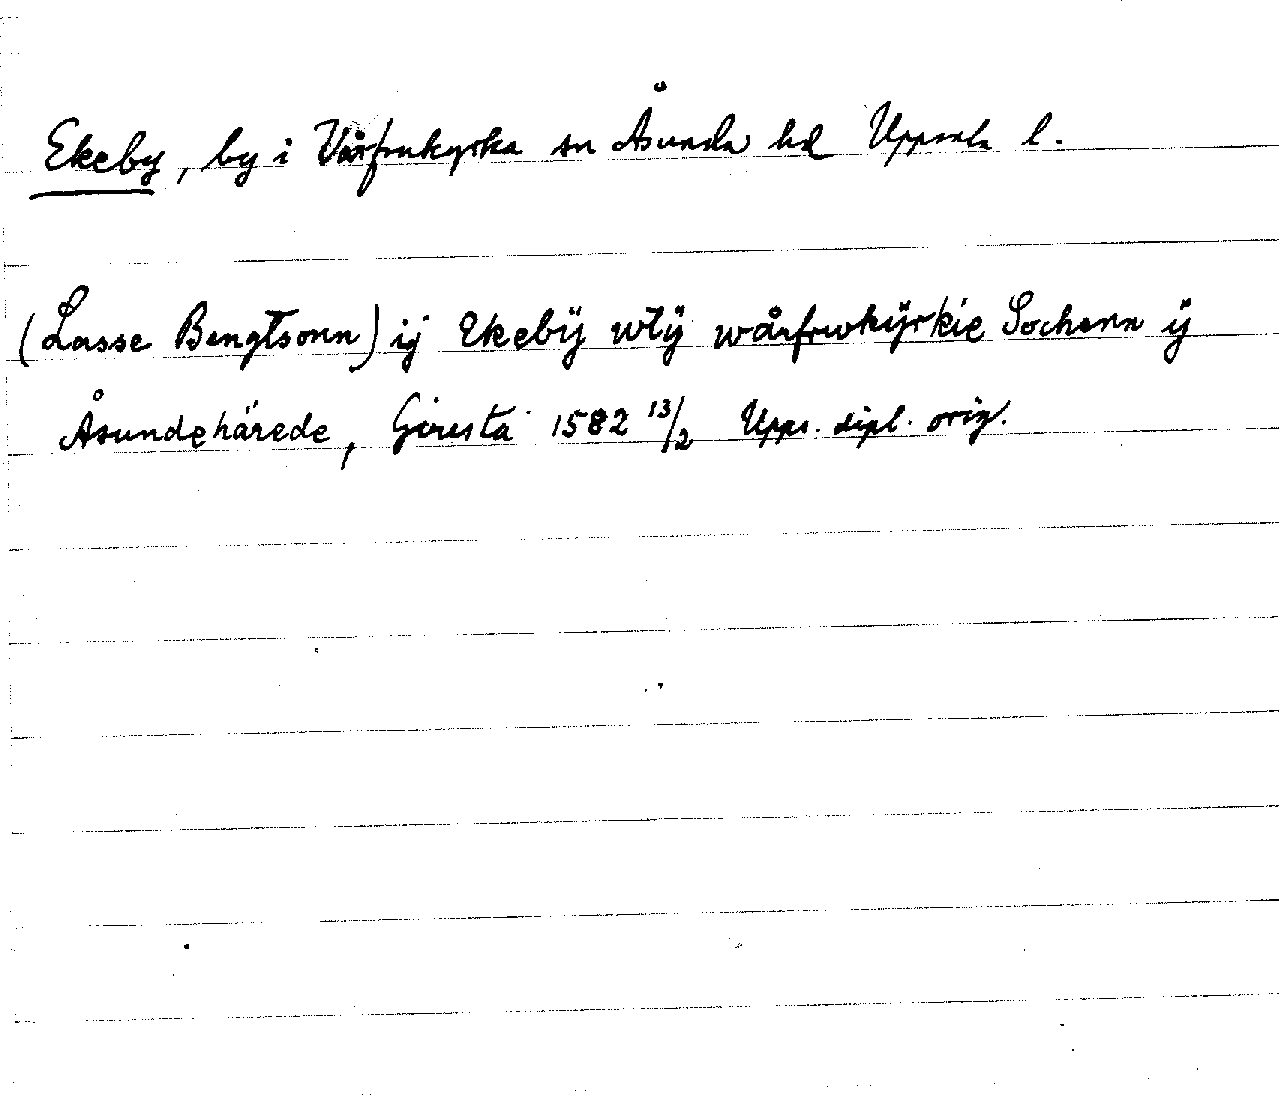 Ekeby, by i Vårfrukyrka sn Åsunda hd Uppsala l.
(Lasse Bengtsonn) ij Ekebÿ wtÿ wårfrwkÿrkie Sochenn ÿ
Åsundehärede, Giresta 1582 13/2 Upps. dipl. orig.